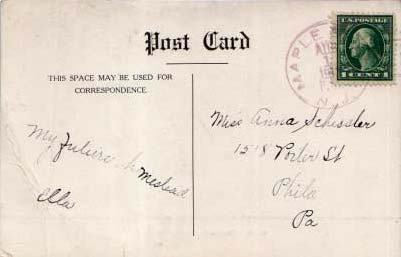 Post Card
THIS SPACE MAY BE USED FOR
CORRESPONDENCE.
MAPLE
AUG
N.J.
U.S. POSTAGE
1 CENT 1
My Future homestead
Ella
Miss Anna Schissler
1518 Porter St
Phila
Pa